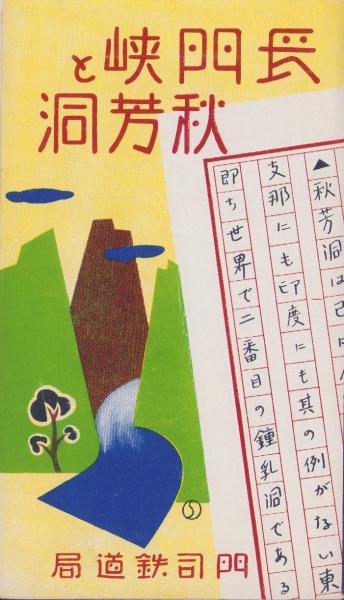 長門峡と
秋芳洞
▲秋芳洞は
支那にも印度にも其の例がない東
即ち世界で二番目の鐘乳洞である
門司鉄道局